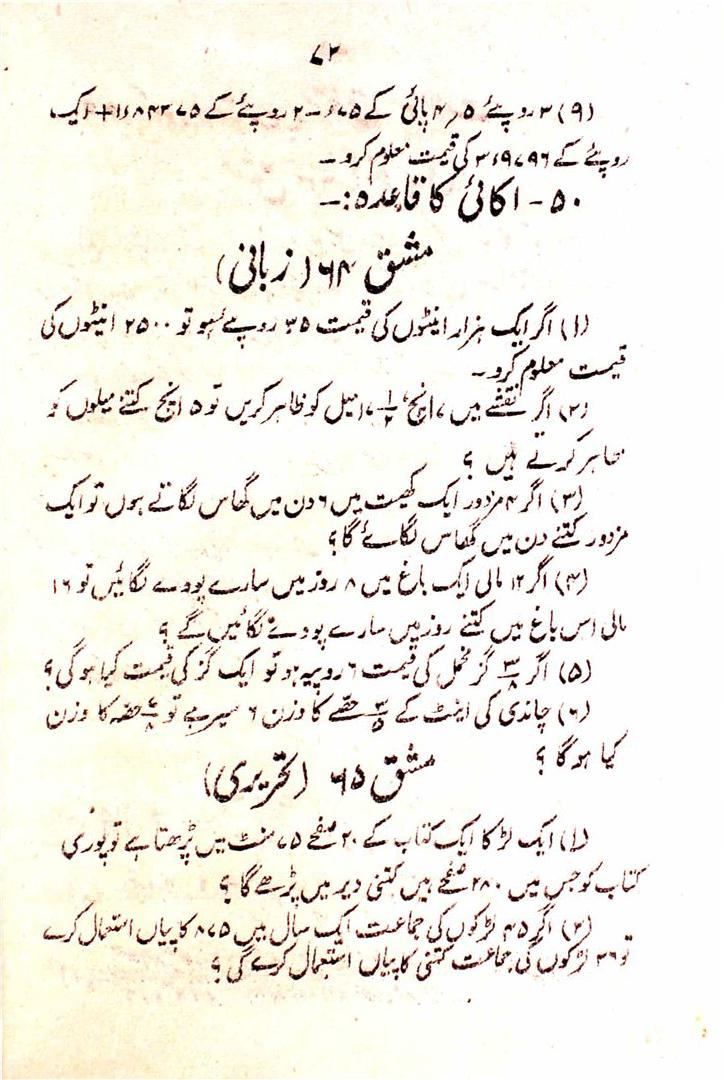 ۷۲
(۹) ۳ روپئے ۴٫۵ پائی کے ۶۷۵ء - ۲ روپئے کے ۱ء۱۸۴۳۷۵ + ایک
روپئے کے ۳ء۱۹۷۹۶ کی قیمت معلوم کرو -
۵۰ - اکائی کا قاعدہ :-
مشق ۶۴ (زبانی)
(۱) اگر ایک ہزار اینٹوں کی قیمت ۳۵ روپئے ہو تو ۲۵۰۰ اینٹوں کی
قیمت معلوم کرو -
(۲) اگر نقشے میں ۷ انچ، ۱/۲ ۱۷ میل کو ظاہر کریں تو ۵ انچ کتنے میلوں کو
ظاہر کرتے ہیں ؟
(۳) اگر ۴ مزدور ایک کھیت میں ۶ دن میں گھاس لگاتے ہوں تو ایک
مزدور کتنے دن میں گھاس لگائے گا ؟
(۴) اگر ۱۲ مالی ایک باغ میں ۸ روز میں سارے پودے لگائیں تو ۱۶
مالی اس باغ میں کتنے روز میں سارے پودے لگائیں گے ؟
(۵) اگر ۳/۸ گز مخمل کی قیمت ۶ روپیہ ہو تو ایک گز کی قیمت کیا ہوگی ؟
(۶) چاندی کی اینٹ کے ۳/۵ حصے کا وزن ۶ سیر ہے تو حصہ کا وزن
کیا ہو گا ؟
مشق ۶۵ (تحریری)
(۱) ایک لڑکا ایک کتاب کے ۲۰ صفحے ۷۵ منٹ میں پڑھتا ہے تو پوری
کتاب کو جس میں ۲۸۰ صفحے ہیں کتنی دیر میں پڑھے گا ؟
(۲) اگر ۴۵ لڑکوں کی جماعت ایک سال میں ۸۷۵ کاپیاں استعمال کرے
تو ۳۶ لڑکوں کی جماعت کتنی کاپیاں استعمال کرے گی ؟